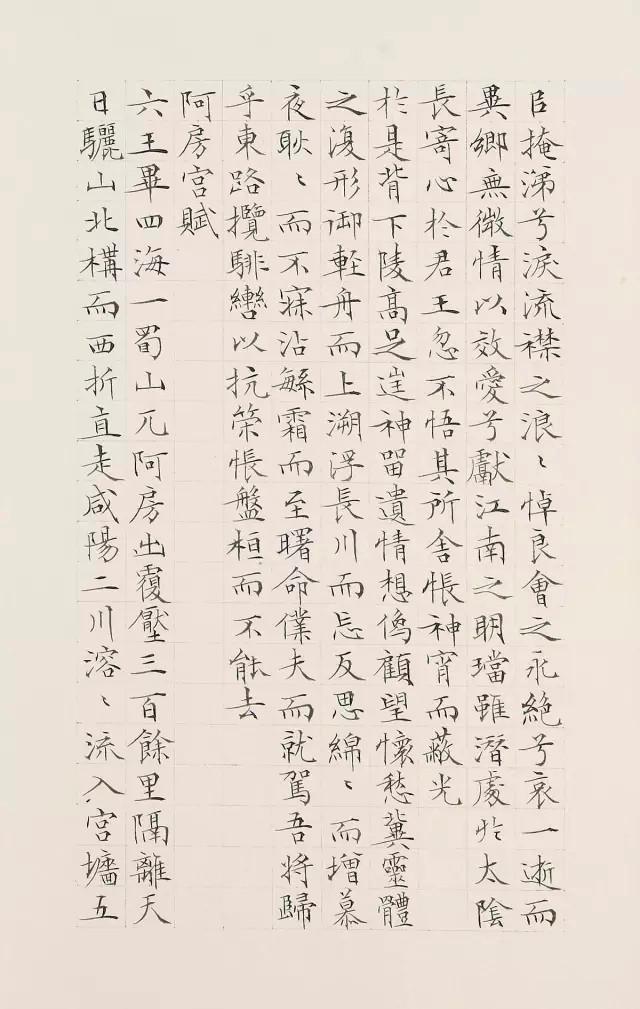 㠯掩涕兮淚流襟之浪〻悼良會之永絕兮哀一逝而
異鄉無微情以效愛兮獻江南之明璫雖潛處於太陰
長寄心於君王忽不悟其所舍悵神宵而蔽光
於是背下陵高足往神留遺情想像顧望懷愁冀靈體
之復形御輕舟而上溯浮長川而忘反思綿〻而增慕
夜耿〻而不寐沾繁霜而至曙命僕夫而就駕吾將歸
乎東路攬騑轡以抗策悵盤桓而不能去
阿房宮賦
六王畢四海一蜀山兀阿房出覆壓三百餘里隔離天
日驪山北構而西折直走咸陽二川溶〻流入宮墻五